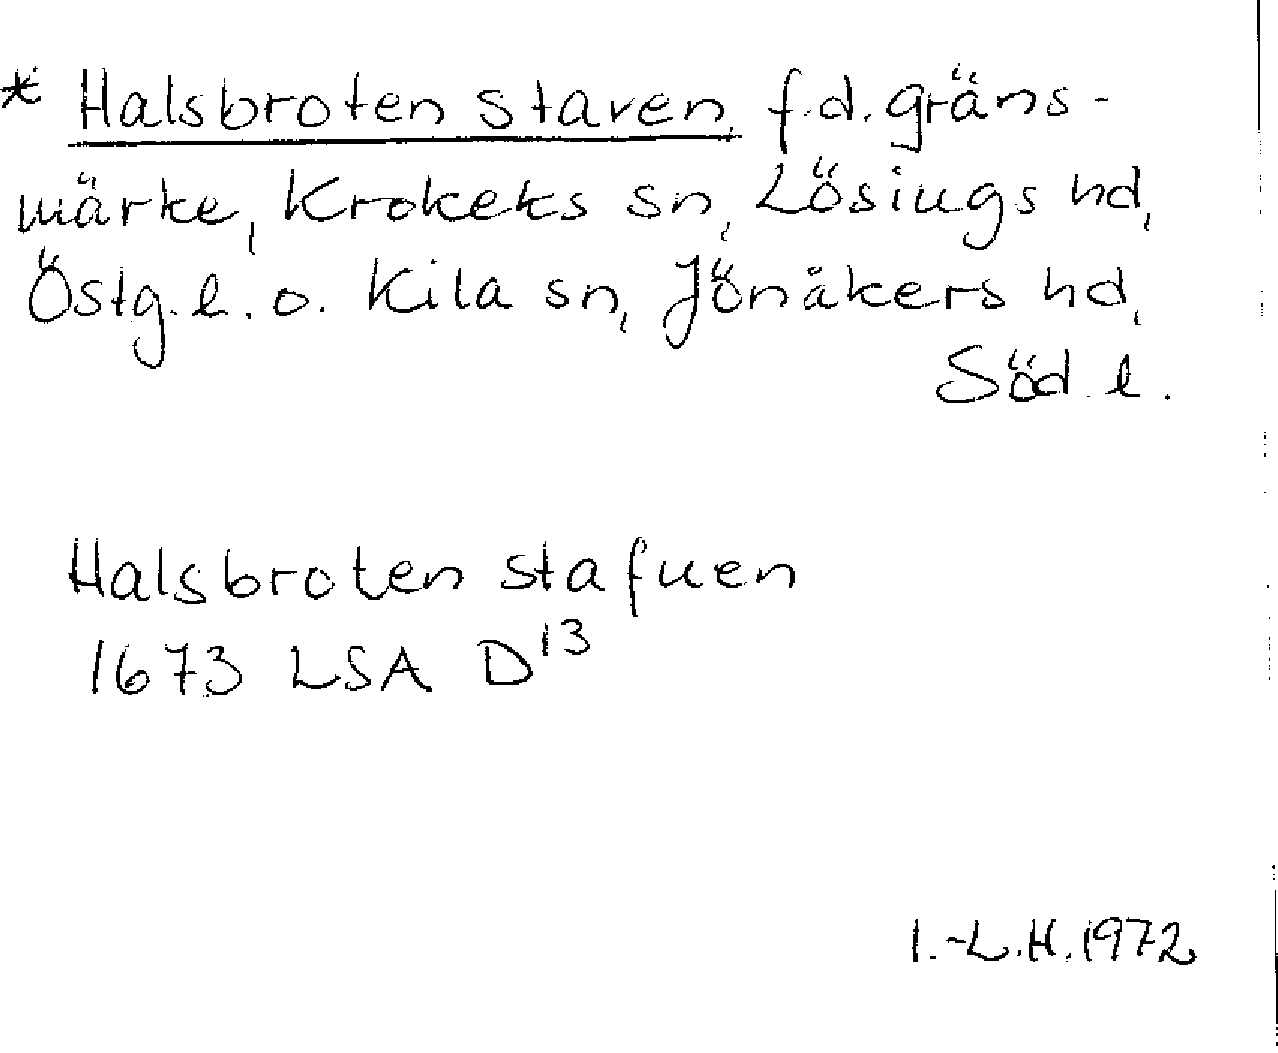 * Halsbroten staven, f.d. gräns-
märke, Krokeks sn, Lösings hd,
Östg. l. o. Kila sn, Jönåkers hd,
Söd. l.
Halsbroten stafuen
1673 LSA D¹³
I.-L.H. 1972